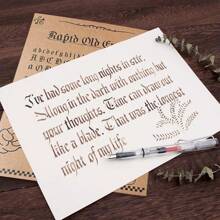 Rapid Old E
I've had some long nights in stir.
Alone in the dark with nothing but
your thoughts. Time can draw out
like a blade. That was the longest
night of my life